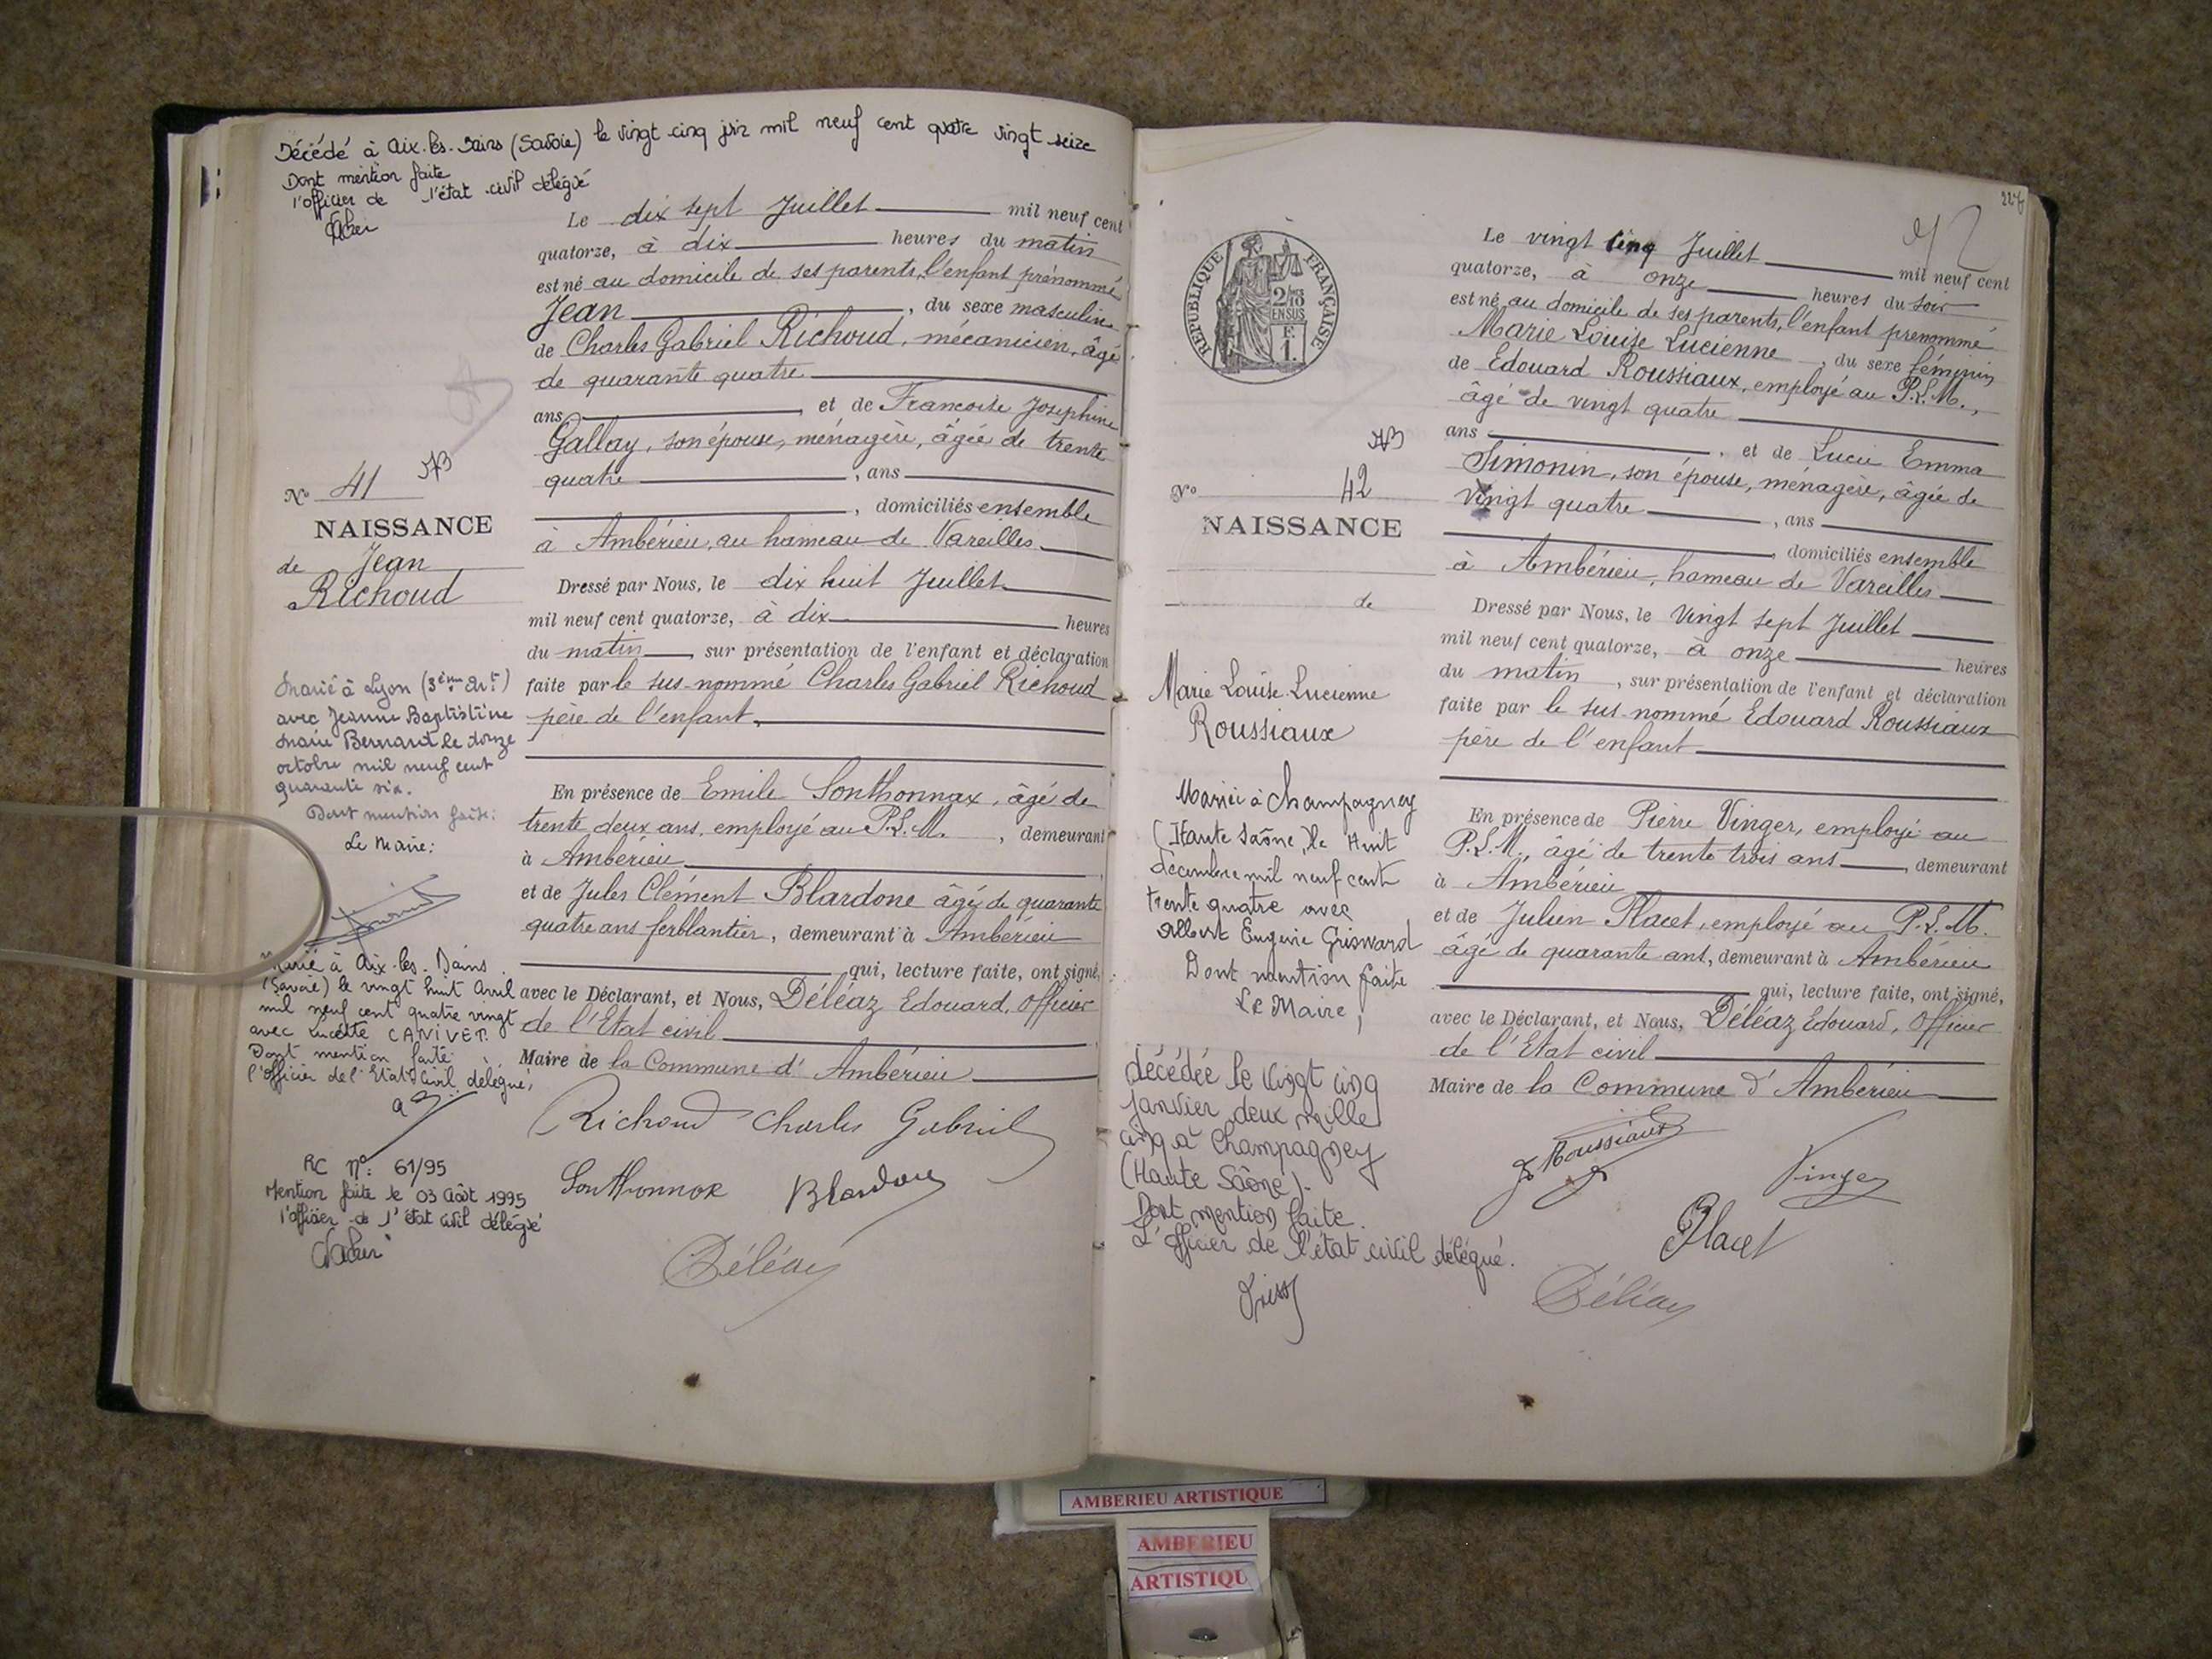 Décédé à Aix-les-Bains (Savoie) le vingt cinq juin mil neuf cent quatre vingt seize
Dont mention faite
l'officier de l'état civil délégué
Le dix sept Juillet mil neuf cent
quatorze, à dix heures du matin
est né au domicile de ses parents, l'enfant prénommé
Jean, du sexe masculin
de Charles Gabriel Richoud, mécanicien, âgé
de quarante quatre
ans, et de Francoise Josephine
Gallay, son épouse, ménagère, âgée de trente
quatre, ans
, domiciliés ensemble
à Ambérieu, au hameau de Vareilles
Dressé par Nous, le dix huit Juillet
mil neuf cent quatorze, à dix heures
du matin, sur présentation de l'enfant et déclaration
faite par le sus-nommé Charles Gabriel Richoud
père de l'enfant,
En présence de Emile Sonthonnax, âgé de
trente deux ans, employé au P.L.M., demeurant
à Ambérieu
et de Jules Clément Blardone âgé de quarante
quatre ans ferblantier, demeurant à Ambérieu
qui, lecture faite, ont signé,
avec le Déclarant, et Nous, Déléaz Edouard, Officier
de l'Etat civil
Maire de la Commune d'Ambérieu
Richoud Charles Gabriel
Sonthonnax Blardone
Déléaz
N° 41
NAISSANCE
de Jean
Richoud
Marié à Lyon (3ème Art)
avec Jeanne Baptistine
Marie Bernard le douze
octobre mil neuf cent
quarante six.
Dont mention faite:
Le Maire:
Marié à Aix-les-Bains
(Savoie) le vingt huit Avril
mil neuf cent quatre vingt
avec Lucette CANIVET.
Dont mention faite
l'officier de l'Etat Civil délégué,
RC N°: 61/95
Mention faite le 03 Août 1995
l'officier de l'état civil délégué
227
42
RÉPUBLIQUE FRANÇAISE
2/10
EN SUS
F.
1.
Le vingt cinq Juillet mil neuf cent
quatorze, à onze heures du soir
est né, au domicile de ses parents, l'enfant prenommé
Marie Louise Lucienne, du sexe féminin
de Edouard Roussiaux, employé au P.L.M.,
âgé de vingt quatre
ans, et de Lucie Emma
Simonin, son épouse, ménagère, âgée de
vingt quatre, ans
, domiciliés ensemble
à Ambérieu, hameau de Vareilles
Dressé par Nous, le Vingt sept Juillet
mil neuf cent quatorze, à onze heures
du matin, sur présentation de l'enfant et déclaration
faite par le sus-nommé Edouard Roussiaux
père de l'enfant
En présence de Pierre Vinger, employé au
P.L.M., âgé de trente trois ans, demeurant
à Ambérieu
et de Julien Placet, employé au P.L.M.
âgé de quarante ans, demeurant à Ambérieu
qui, lecture faite, ont signé,
avec le Déclarant, et Nous, Déléaz Edouard, Officier
de l'Etat civil
Maire de la Commune d'Ambérieu
Roussiaux
Vinger
Placet
Déléaz
N° 42
NAISSANCE
de
Marie Louise Lucienne
Roussiaux
Mariée à Champagney
(Haute Saône), le Huit
décembre mil neuf cent
trente quatre avec
Albert Eugène Grisward
Dont mention faite
Le Maire,
décédée le vingt cinq
janvier deux mille
cinq à Champagney
(Haute Saône).
Dont mention faite.
L'officier de l'état civil délégué.
AMBERIEU ARTISTIQUE
AMBERIEU
ARTISTIQU